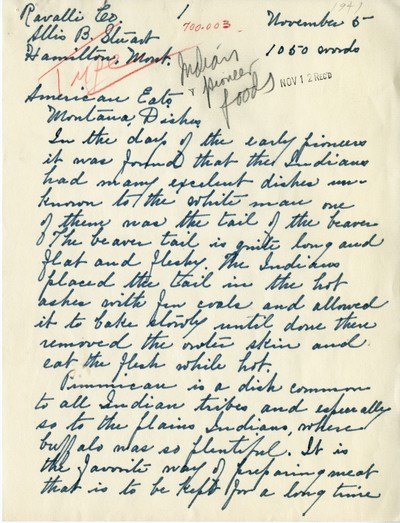 1941
Ravalli Co. 1 November 5
700.003
Allis B. Stuart
Hamilton, Mont. 1050 words
Type
Indians & pioneer foods
NOV 12 REC'D
American Eats
Montana Dishes
In the days of the early pioneers
it was found that the Indians
had many excelent dishes un-
known to the white man one
of them was the tail of the beaver
The beaver tail is quite long and
flat and fleshy. The Indians
placed the tail in the hot
ashes with few coals and allowed
it to bake slowly until done then
removed the outer skin and
eat the flesh while hot.
Pimmican is a dish common
to all Indian tribes and especially
so to the plains Indians, where
buffalo was so plentiful. It is
the favorite way of preparing meat
that is to be kept for a long time